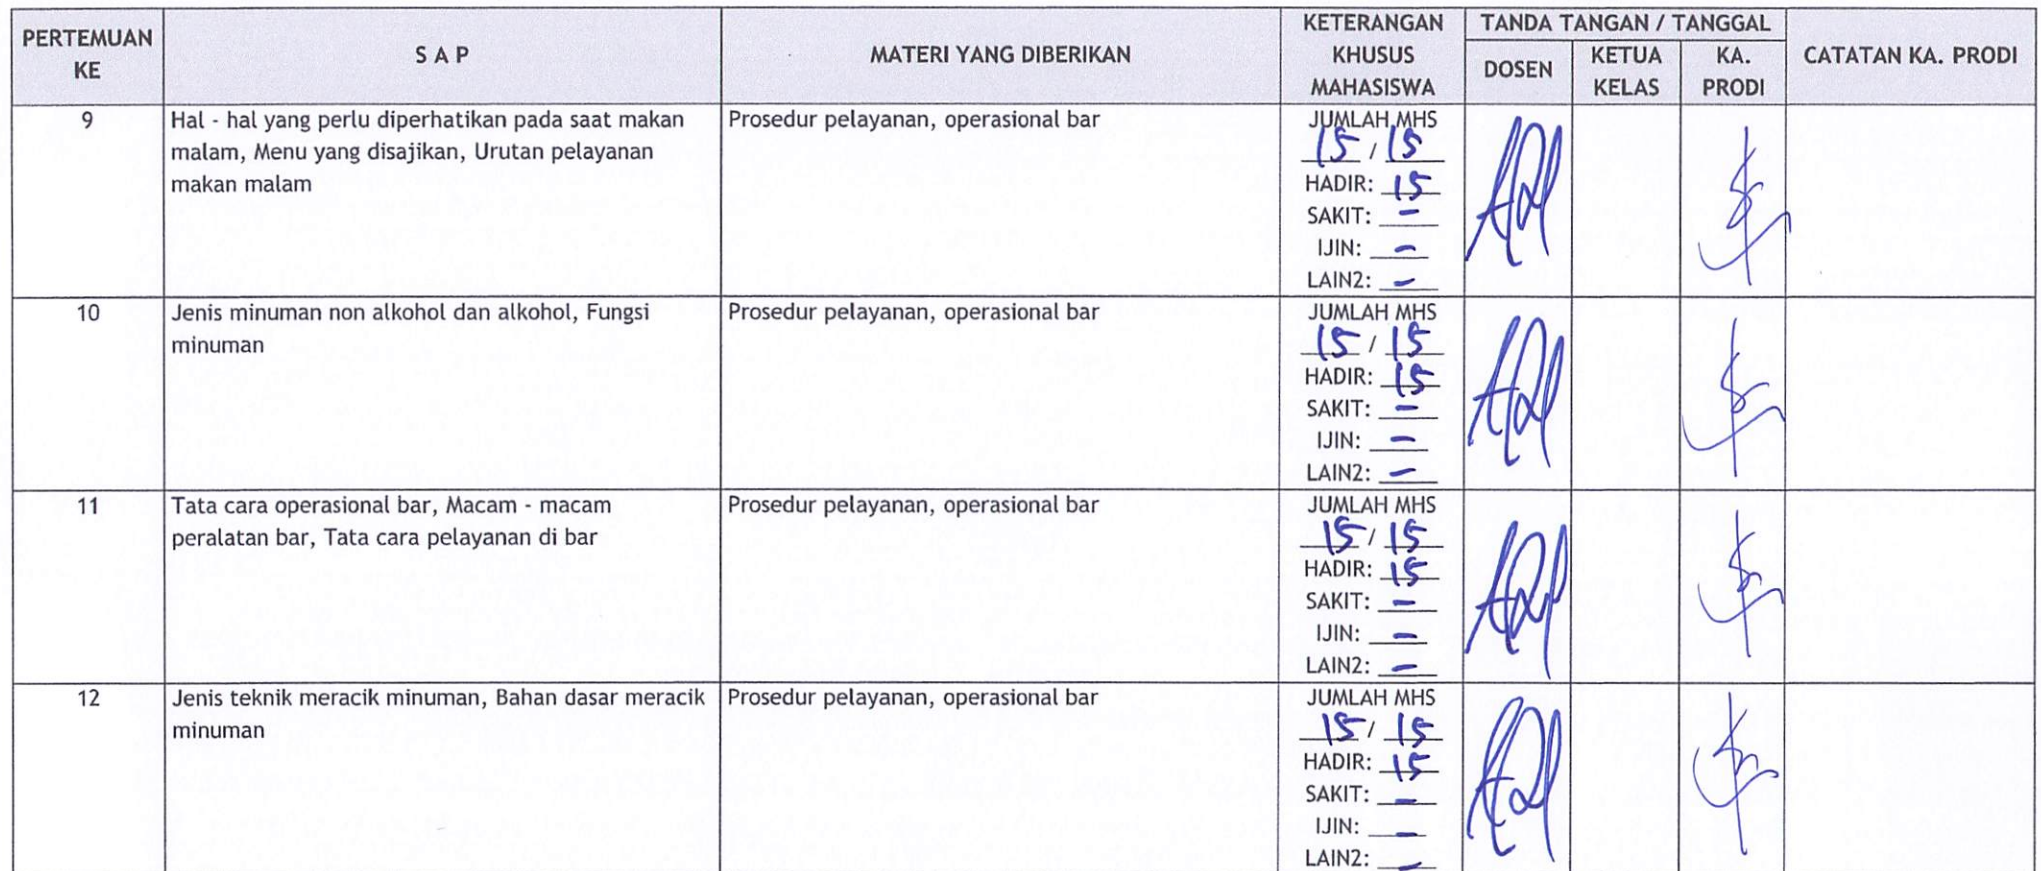 PERTEMUAN KE
S A P
MATERI YANG DIBERIKAN
KETERANGAN KHUSUS MAHASISWA
TANDA TANGAN / TANGGAL
DOSEN
KETUA KELAS
KA. PRODI
CATATAN KA. PRODI
9
Hal - hal yang perlu diperhatikan pada saat makan
malam, Menu yang disajikan, Urutan pelayanan
makan malam
Prosedur pelayanan, operasional bar
JUMLAH MHS
15 / 15
HADIR: 15
SAKIT: -
IJIN: -
LAIN2: -
10
Jenis minuman non alkohol dan alkohol, Fungsi
minuman
Prosedur pelayanan, operasional bar
JUMLAH MHS
15 / 15
HADIR: 15
SAKIT: -
IJIN: -
LAIN2: -
11
Tata cara operasional bar, Macam - macam
peralatan bar, Tata cara pelayanan di bar
Prosedur pelayanan, operasional bar
JUMLAH MHS
15 / 15
HADIR: 15
SAKIT: -
IJIN: -
LAIN2: -
12
Jenis teknik meracik minuman, Bahan dasar meracik
minuman
Prosedur pelayanan, operasional bar
JUMLAH MHS
15 / 15
HADIR: 15
SAKIT: -
IJIN: -
LAIN2: -